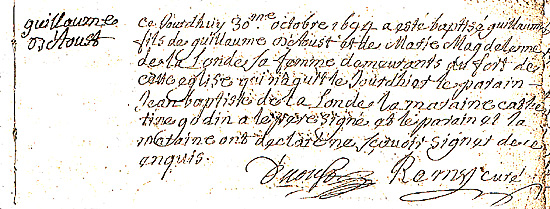 guillaume
D'aoust
ce Jourdhuy 30me octobre 1694 a este baptisé guillaume
fils de guillaume D'aoust et de Marie Magdelenne
de la Londe sa femme demeurants au fort de
cette eglise qui nâquit le Jourdhier le parain
Jean baptiste de la Londe la maraine cathe
rine godin a le pere signé et le parain et la
maraine ont declaré ne sçavoir signer de ce
enquis.
Daoust Remy Curé